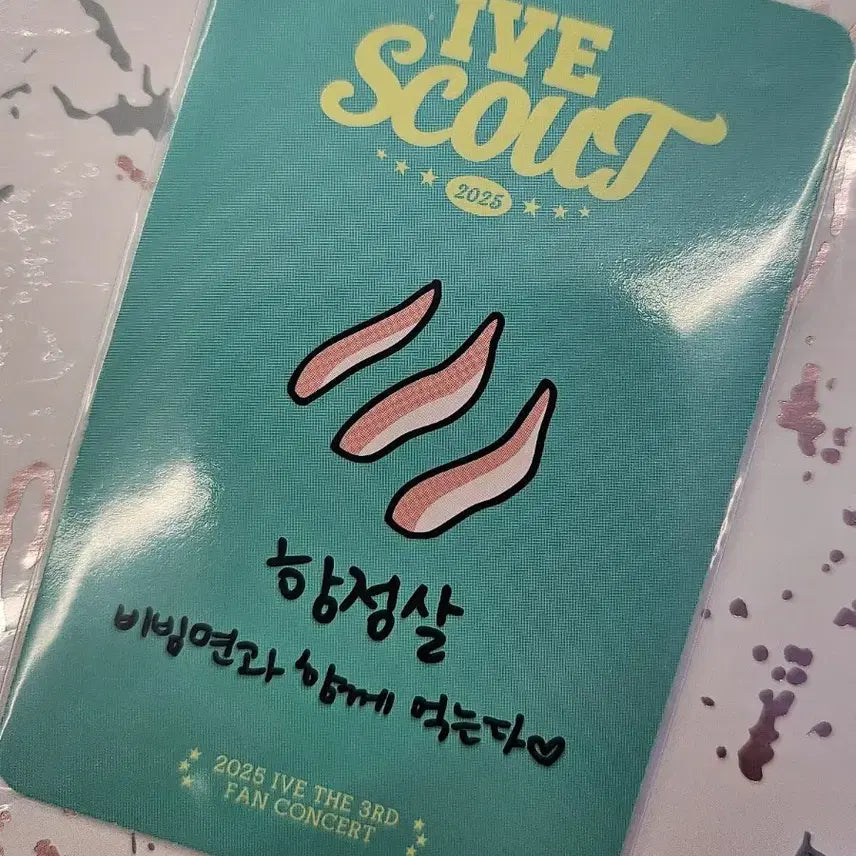 IVE
SCOUT
2025
항정살
비빔면과 함께 먹는다♡
2025 IVE THE 3RD
FAN CONCERT